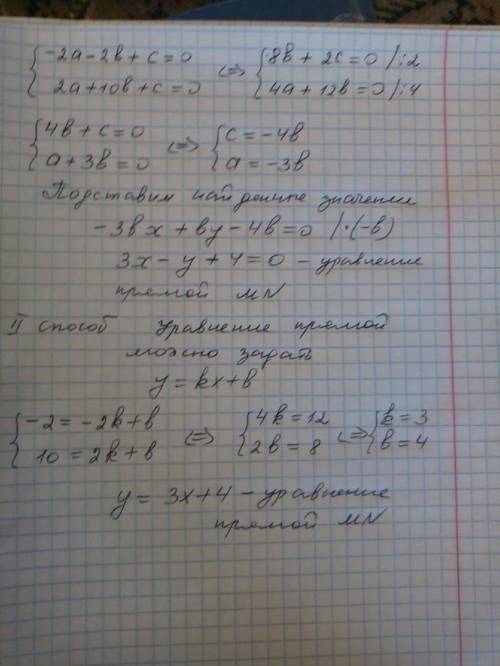 {-2a-2b+c=0 <=> {8b+2c=0 |:2
{2a+10b+c=0 {4a+12b=0 |:4
{4b+c=0 <=> {c=-4b
{a+3b=0 {a=-3b
Подставим найденные значения
-3bx+by-4b=0 |·(-b)
3x-y+4=0 - уравнение
прямой MN
II способ Уравнение прямой
можно задать
y=kx+b
{-2=-2k+b <=> {4k=12 <=> {k=3
{10=2k+b {2b=8 {b=4
y=3x+4 - уравнение
прямой MN